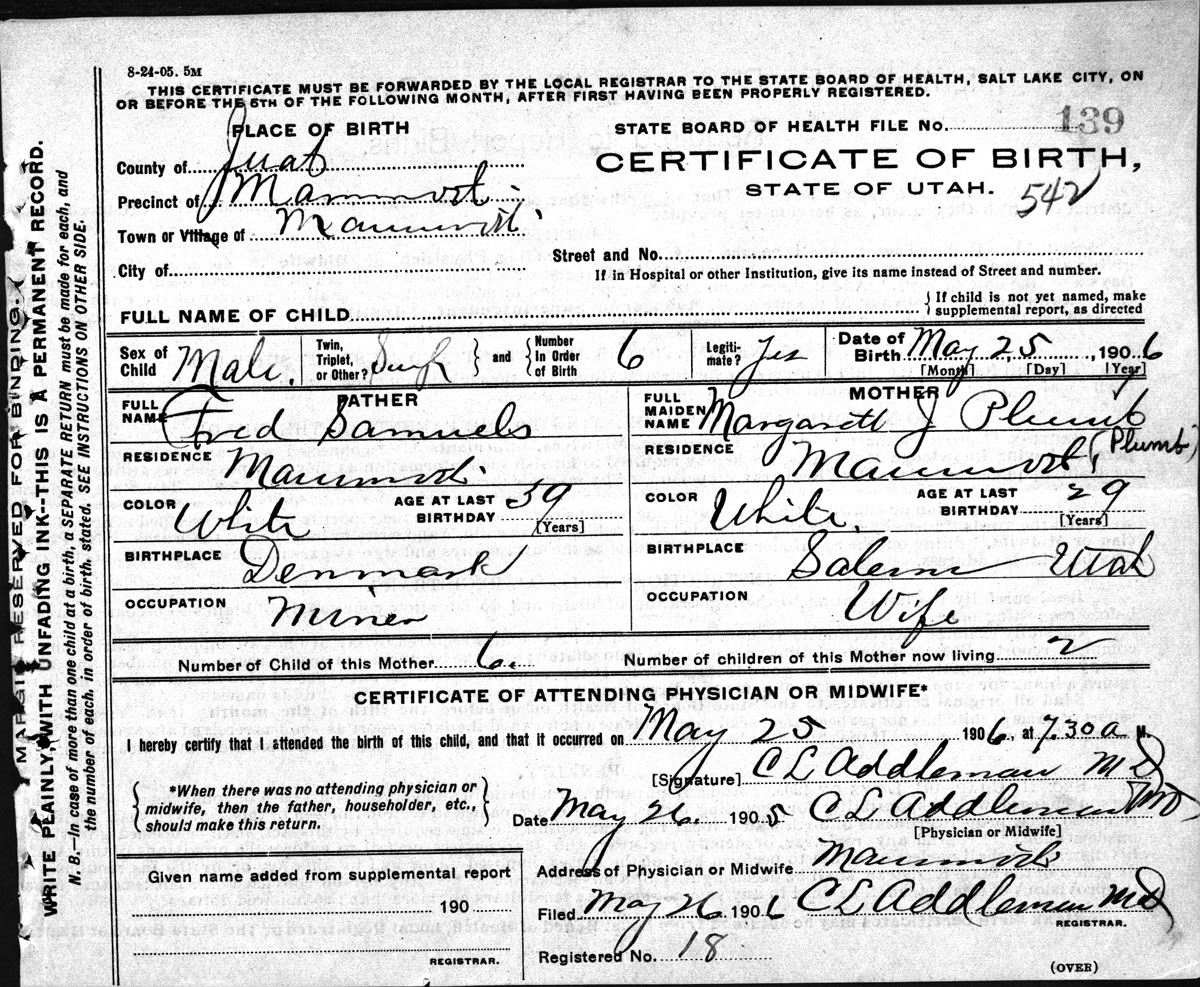 8-24-05. 5M
THIS CERTIFICATE MUST BE FORWARDED BY THE LOCAL REGISTRAR TO THE STATE BOARD OF HEALTH, SALT LAKE CITY, ON
OR BEFORE THE 5TH OF THE FOLLOWING MONTH, AFTER FIRST HAVING BEEN PROPERLY REGISTERED.
PLACE OF BIRTH
STATE BOARD OF HEALTH FILE No. 139
County of Juab
CERTIFICATE OF BIRTH,
STATE OF UTAH.
542
Precinct of Mammoth
Town or Village of Mammoth
Street and No.
City of
If in Hospital or other Institution, give its name instead of Street and number.
FULL NAME OF CHILD
} If child is not yet named, make
supplemental report, as directed
Sex of Child Male. Twin, Triplet, or Other? Single } and { Number In Order of Birth 6 Legiti-mate? Yes Date of Birth May 25, 1906
[Month] [Day] [Year]
FATHER
FULL NAME Fred Samuels
RESIDENCE Mammoth
COLOR White AGE AT LAST BIRTHDAY 39
[Years]
BIRTHPLACE Denmark
OCCUPATION Miner
MOTHER
FULL MAIDEN NAME Margarett J Plumb
(Plumb)
RESIDENCE Mammoth
COLOR White. AGE AT LAST BIRTHDAY 29
[Years]
BIRTHPLACE Salem Utah
OCCUPATION Wife
Number of Child of this Mother 6. Number of children of this Mother now living 2
CERTIFICATE OF ATTENDING PHYSICIAN OR MIDWIFE*
I hereby certify that I attended the birth of this child, and that it occurred on May 25, 1906, at 7.30 a M.
[Signature] C L Addleman MD
{ *When there was no attending physician or
midwife, then the father, householder, etc.,
should make this return. }
Date May 26. 1905 C L Addleman MD
[Physician or Midwife]
Address of Physician or Midwife Mammoth
Filed May 26 1906 C L Addleman MD
REGISTRAR.
Registered No. 18
Given name added from supplemental report
190
REGISTRAR.
(OVER)
MARGIN RESERVED FOR BINDING.
WRITE PLAINLY, WITH UNFADING INK--THIS IS A PERMANENT RECORD.
N. B.—In case of more than one child at a birth, a SEPARATE RETURN must be made for each, and
the number of each, in order of birth, stated. SEE INSTRUCTIONS ON OTHER SIDE.